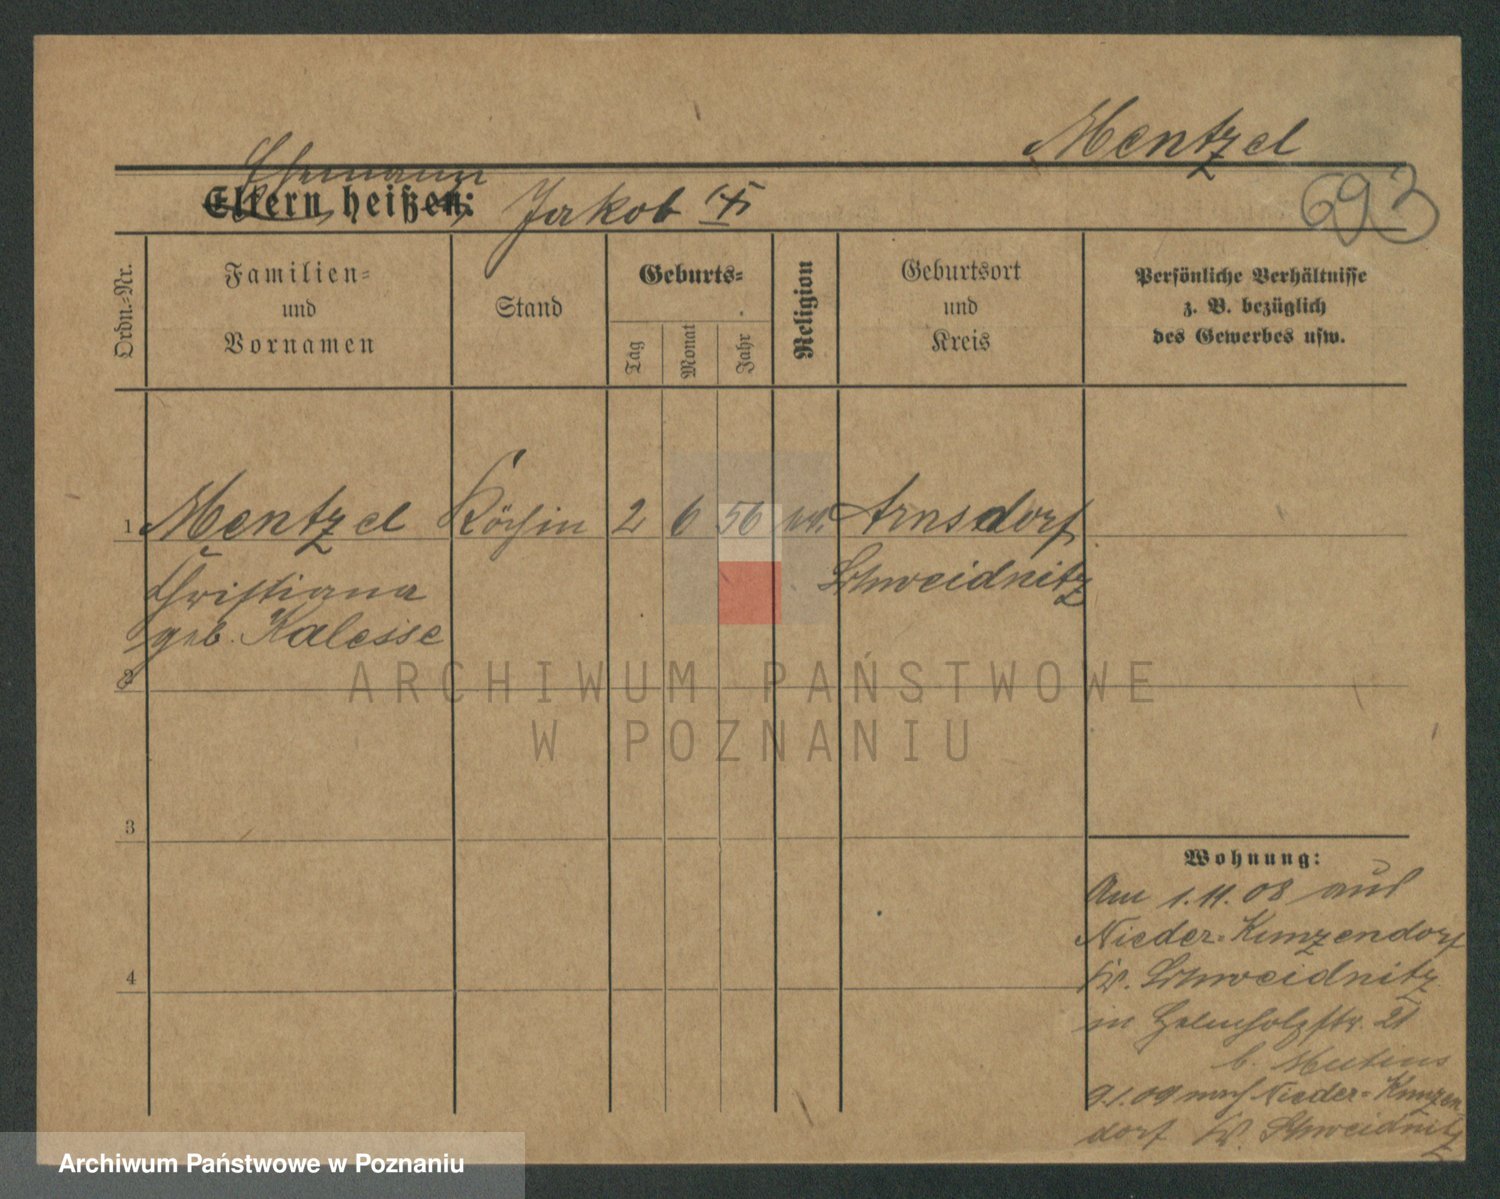 Mentzel
693
Ehemann
Eltern heißen: Jakob
Ordn.-Nr.
Familien-
und
Vornamen
Stand
Geburts-
Tag
Monat
Jahr
Religion
Geburtsort
und
Kreis
Persönliche Verhältnisse
z. B. bezüglich
des Gewerbes usw.
1 Mentzel Köchin 2 6 56 ev. Arnsdorf
Christiana Schweidnitz
geb. Kalesse
2
3
4
Wohnung:
Am 1.11.08 aus
Nieder-Kunzendorf
Kr. Schweidnitz
in Helmholzstr. 21
b.
9.1.09 nach Nieder-Kunzen
dorf Kr. Schweidnitz
ARCHIWUM PAŃSTWOWE
W POZNANIU
Archiwum Państwowe w Poznaniu